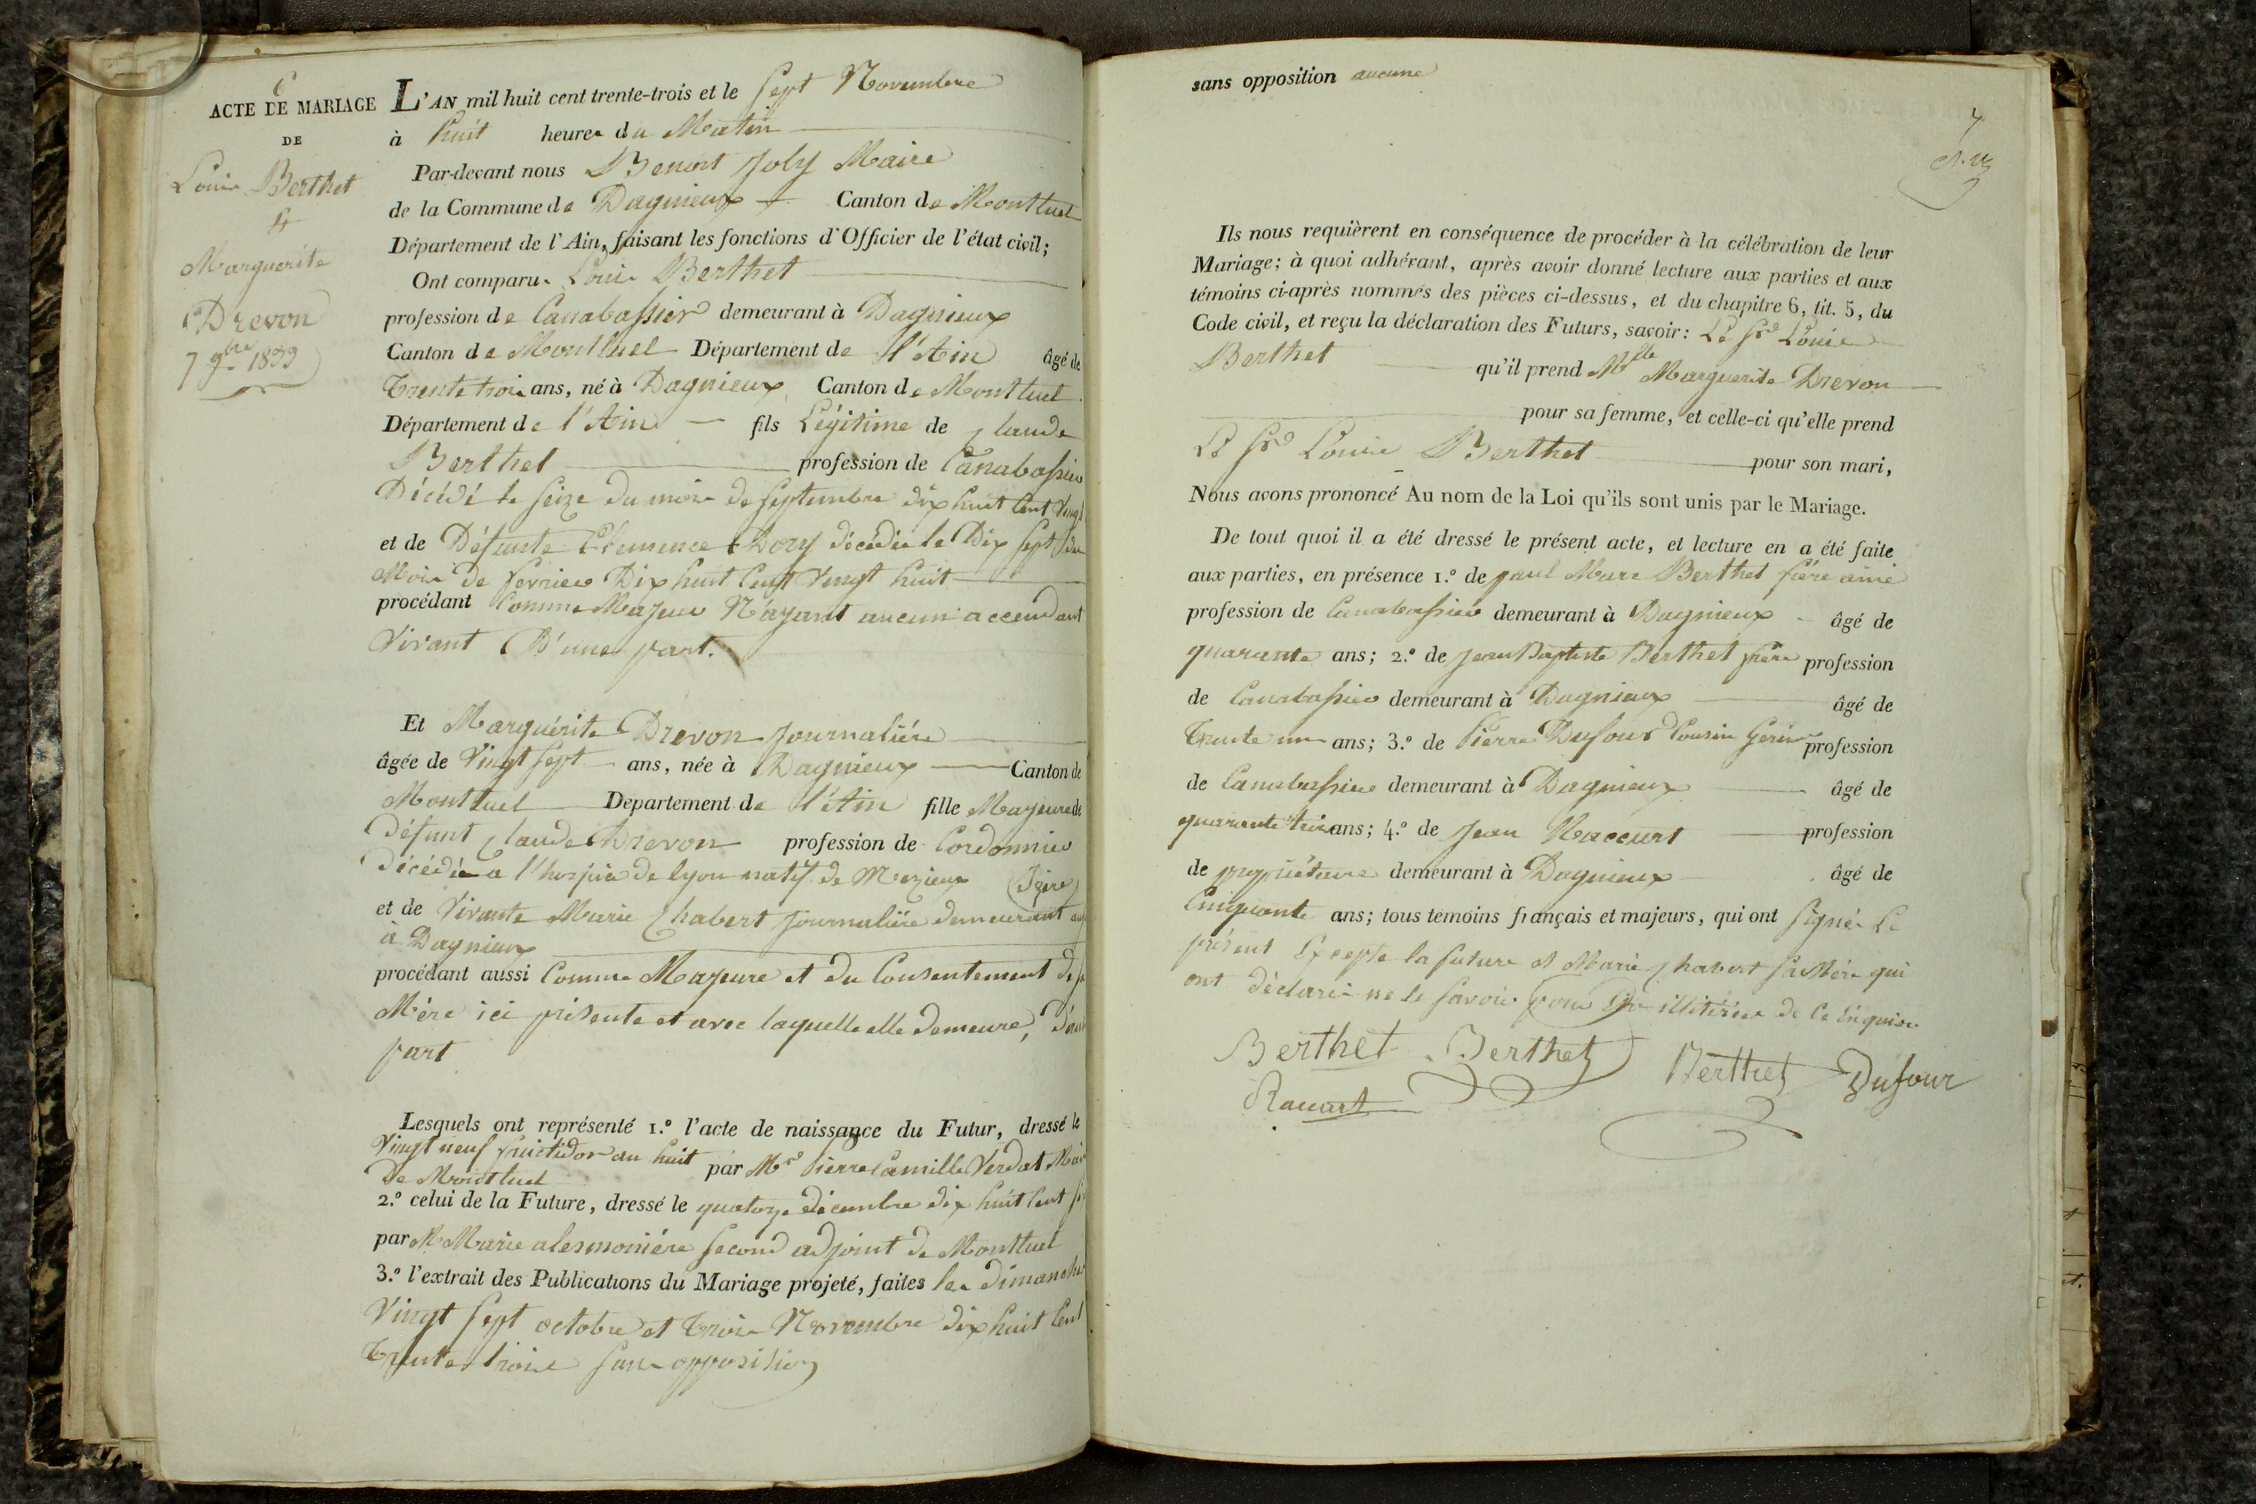 6
ACTE DE MARIAGE
DE
Louis Berthet
&
Marguerite
Drevon
7 9bre 1833
L'AN mil huit cent trente-trois et le sept Novembre
à huit heures du Matin
Par-devant nous Benoit Joly Maire
de la Commune de Dagnieux Canton de Montluel
Département de l'Ain, faisant les fonctions d'Officier de l'état civil;
Ont comparus Louis Berthet
profession de Canabassier demeurant à Dagnieux
Canton de Montluel Département de l'Ain âgé de
Trente trois ans, né à Dagnieux Canton de Montluel
Département de l'Ain fils Légitime de Claude
Berthet profession de Canabassier
Décédé le seize du mois de septembre dix huit Cent Vingt
et de Défunte Clémence Dory décédée le Dix sept du
Mois de février Dix huit Cent Vingt huit
procédant Comme Majeur N'ayant aucun accendant
Vivant D'une part.
Et Marguérite Drevon Journaliére
âgée de Vingt sept ans, née à Dagnieux Canton de
Montluel Departement de l'Ain fille Majeure de
Défunt Claude Drevon profession de Cordonnier
Décédé a l'hospice de lyon natif de Mezieux (Izère)
et de Vivante Marie Chabert Journaliére demeurant
à Dagnieux
procédant aussi Comme Majeure et du Consentement de sa
Mére ici présente et avec laquelle elle demeure,
part
Lesquels ont représenté 1.º l'acte de naissance du Futur, dressé le
Vingt neuf fructidor an huit par Mr Pierre Camille Verdat
De Montluel
2.º celui de la Future, dressé le quatorze décembre dix huit Cent
par Mr Marie alesmoniére second adjoint de Montluel
3.º l'extrait des Publications du Mariage projeté, faites les dimanches
Vingt sept octobre et trois Novembre dix huit Cent
Trente trois sans opposition
sans opposition aucune
Ils nous requièrent en conséquence de procéder à la célébration de leur
Mariage; à quoi adhérant, après avoir donné lecture aux parties et aux
témoins ci-après nommés des pièces ci-dessus, et du chapitre 6, tit. 5, du
Code civil, et reçu la déclaration des Futurs, savoir: Le Sr Louis
Berthet qu'il prend Mlle Marguerite Drevon
pour sa femme, et celle-ci qu'elle prend
Le Sr Louis Berthet pour son mari,
Nous avons prononcé Au nom de la Loi qu'ils sont unis par le Mariage.
De tout quoi il a été dressé le présent acte, et lecture en a été faite
aux parties, en présence 1.º de paul Marc Berthet frére ainé
profession de Canabassier demeurant à Dagnieux âgé de
quarante ans; 2.º de Jean Baptiste Berthet frère profession
de Canabassier demeurant à Dagnieux âgé de
Trente un ans; 3.º de Pierre Dufour Cousin Germ profession
de Canabassier demeurant à Dagnieux âgé de
quarante trois ans; 4.º de Jean profession
de propriétaire demeurant à Dagnieux âgé de
Cinquante ans; tous temoins français et majeurs, qui ont signés Le
présent Excepté la future et Marie Chabert sa Mére qui
ont déclarés ne le savoir pour être illitérées de Ce Enquises
Berthet Berthet Berthet Dufour